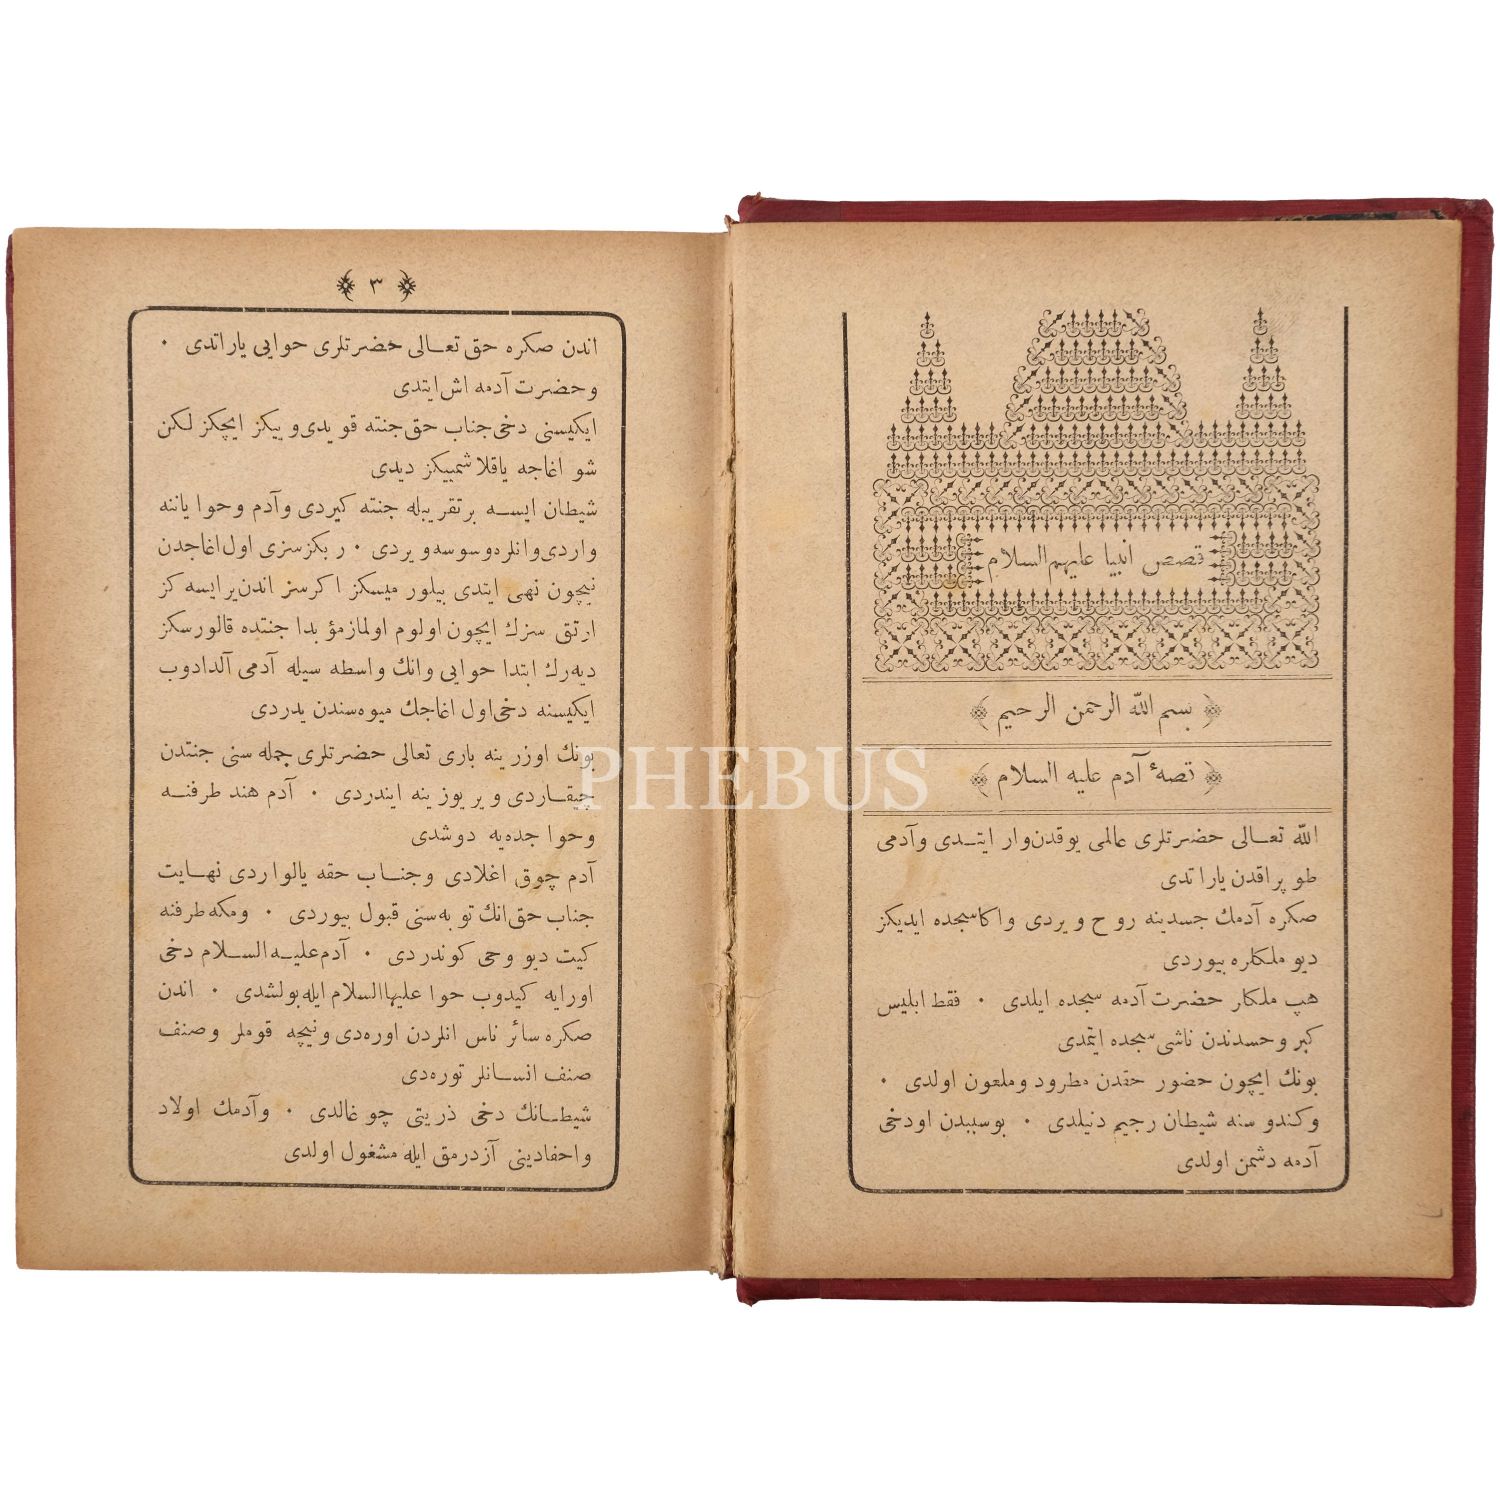 قصص انبیا علیهم السلام
﴿ بسم الله الرحمن الرحیم ﴾
﴿ قصهٔ آدم علیه السلام ﴾
الله تعـالی حضرتلری عالمی یوقدن وار ایتـدی وآدمی
طوپراقدن یاراتدی
صکره آدمك جسدینه روح ویردی واکا سجده ایدیکز
دیو ملکلره بیوردی
هپ ملکلر حضرت آدمه سجده ایلدی · فقط ابلیس
کبر وحسدندن ناشی سجده ایتمدی
بونك ایچون حضور حقدن مطرود وملعون اولدی ·
وکندوسنه شیطان رجیم دنیلدی · بوسببدن اودخی
آدمه دشمن اولدی
﴿ ٣ ﴾
اندن صکره حق تعـالی حضرتلری حوایی یاراتدی ·
وحضرت آدمه اش ایتدی
ایکیسنی دخی جناب حق جنته قویدی وییکز ایچکز لکن
شو اغاجه یاقلاشمییکز دیدی
شیطان ایسـه برتقریبله جنته کیردی وآدم وحوا یاننه
واردی وانلره وسوسه ویردی · ربکز سزی اول اغاجدن
نیچون نهی ایتدی بیلور میسکز اکر سز اندن یر ایسه کز
ارتق سزك ایچون اولوم اولماز مؤبدا جنتده قالورسکز
دیه رك ابتدا حوایی وانك واسطه سیله آدمی آلدادوب
ایکیسنه دخی اول اغاجك میوه سندن یدردی
بونك اوزرینه باری تعالی حضرتلری جمله سنی جنتدن
چیقـاردی ویر یوزینه ایندردی · آدم هند طرفنـه
وحوا جدهیه دوشدی
آدم چوق اغلادی وجنـاب حقه یالواردی نهـایت
جناب حق انك توبه سنی قبول بیوردی · ومکه طرفنه
کیت دیو وحی کوندردی · آدم علیـه السـلام دخی
اورایه کیدوب حوا علیها السلام ایله بولشدی · اندن
صکره سائر ناس انلردن اوره دی ونیچه قوملر وصنف
صنف انسـانلر توره دی
شیطـانك دخی ذریتی چوغالدی · وآدمك اولاد
واحفادینی آزدرمق ایله مشغول اولدی
PHEBUS